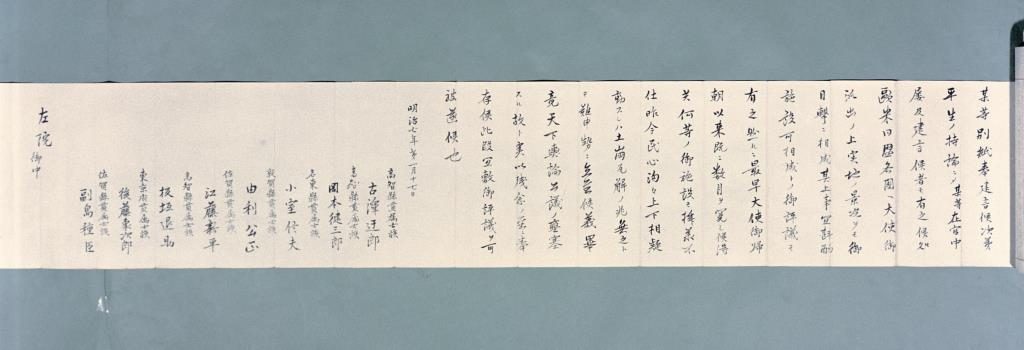 某等別紙奉建言候次第
平生ノ持論ニシテ某等在官中
屡及建言候者モ有之候処
欧米同盟各国ヘ大使御
派出ノ上実地ノ景況ヲモ御
目撃ニ相成其上事宜斟酌
施設可相成トノ御評議モ
有之然ルニ最早大使御帰
朝以来既ニ数月ヲ閲シ候得共
何等ノ御施設モ拝承不
仕昨今民心洶々上下相疑
動スレハ土崩瓦解ノ兆無之ト
モ難申勢ニ立至候義畢
竟天下輿論公議ノ壅塞
スル故ト実以残念ノ至ニ奉
存候此段宜敷御評議可
被遂候也
明治七年第一月十七日
高知縣貫属士族
古澤迂郎
高知縣貫属士族
岡本健三郎
名東縣貫属士族
小室信夫
敦賀縣貫属士族
由利公正
佐賀縣貫属士族
江藤新平
高知縣貫属士族
板垣退助
東京府貫属士族
後藤象次郎
佐賀縣貫属士族
副島種臣
左院 御中